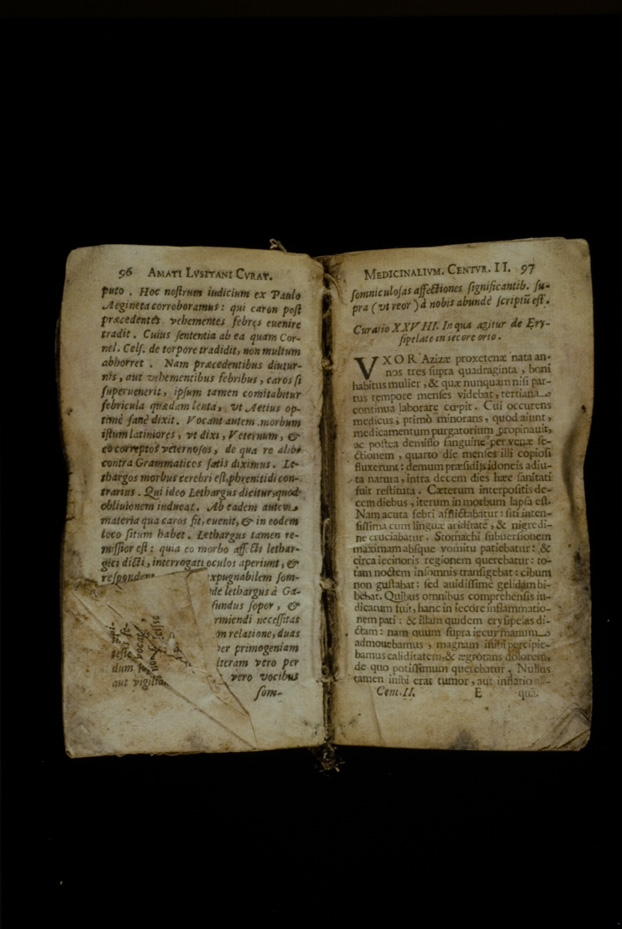 96 AMATI LVSITANI CVRAT.
puto . Hoc nostrum iudicium ex Paulo
Aegineta corroboramus : qui caron post
præcedentes vehementes febres euenire
tradit . Cuius sententia ab ea quam Cor-
nel. Cels. de torpore tradidit, non multum
abhorret . Nam præcedentibus diutur-
nis , aut vehementibus febribus , caros si
superuenerit , ipsum tamen comitabitur
febricula quædam lenta , vt Aetius op-
timè sanè dixit . Vocant autem morbum
istum latiniores , vt dixi , Veternum , &
eo correptos veternosos , de qua re alibi
contra Grammaticos satis diximus . Le-
thargos morbus cerebri est, phrenitidi con-
trarius . Qui ideo Lethargus dicitur, quod
obliuionem inducat . Ab eadem autem
materia qua caros fit, euenit, & in eodem
loco situm habet . Lethargus tamen re-
missior est : quia eo morbo affecti lethar-
gici dicti , interrogati oculos aperiunt , &
respondent xpugnabilem som-
de lethargus à Ca-
fundus sopor , &
rmiendi necessitas
m relatione, duas
per primogeniam
lteram vero per
dum vero vocibus
aut vigilia
som-
MEDICINALIVM. CENTVR. II. 97
somniculosas affectiones significantib. su-
pra ( vt reor ) à nobis abundè scriptũ est .
Curatio XXVIII. In qua agitur de Ery-
sipelate in iecore orto .
VXOR Azizæ proxetenæ nata an-
nos tres supra quadraginta , boni
habitus mulier , & quæ nunquam nisi par-
tus tempore menses videbat , tertiana
continua laborare cœpit . Cui occurens
medicus , primò minorans , quod aiunt ,
medicamentum purgatorium propinauit,
ac postea demisso sanguine per venæ se-
ctionem , quarto die menses illi copiosi
fluxerunt : demum præsidijs idoneis adiu-
ta natura , intra decem dies hæc sanitati
fuit restituta . Cæterum interpositis de-
cem diebus , iterum in morbum lapsa est.
Nam acuta febri afflictabatur : siti inten-
sissima cum linguæ ariditate , & nigredi-
ne cruciabatur . Stomachi subuersionem
maximam absque vomitu patiebatur : &
circa iecinoris regionem querebatur : to-
tam noctem insomnis transigebat : cibum
non gustabat : sed auidissimè gelidam bi-
bebat. Quibus omnibus comprehensis iu-
dicatum fuit , hanc in iecore inflammatio-
nem pati : & illam quidem erysipelas di-
ctam : nam quum supra iecur manum
admouebamus , magnam inibi percipie-
bamus caliditatem, & ægrotans dolorem,
de quo potissimum querebatur . Nullus
tamen inibi erat tumor , aut inflatio
Cent. II. E qua.